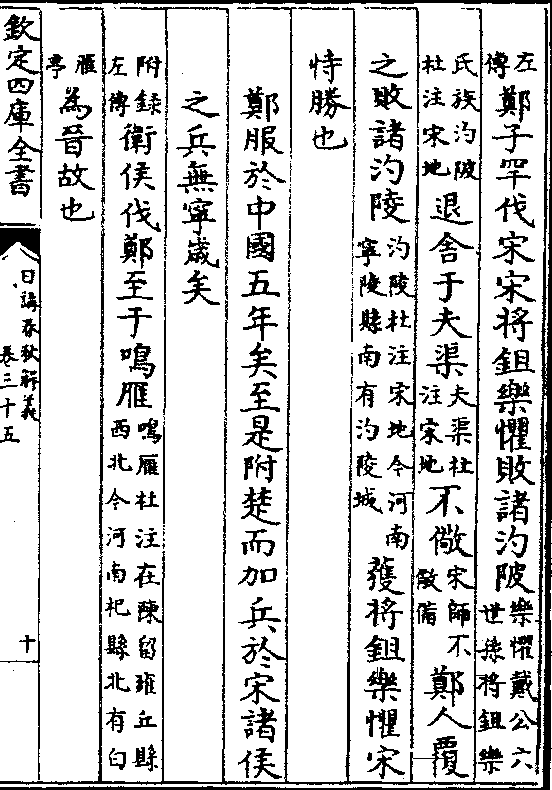 左傳鄭子罕伐宋宋將鉏樂懼敗諸汋陂樂懼戴公六世孫將鉏樂
氏族汋陂杜注宋地退舍于夫渠夫渠杜注宋地不儆宋師不儆備鄭人覆
之敗諸汋陵汋陵杜注宋地今河南寧陵縣南有汋陵城獲將鉏樂懼宋
恃勝也
鄭服於中國五年矣至是附楚而加兵於宋諸侯
之兵無寧歲矣
附録左傳衛侯伐鄭至于鳴雁鳴雁杜注在陳留雍丘縣西北今河南杞縣北有白
雁亭為晉故也
欽定四庫全書
日講春秋解義
卷三十五
十